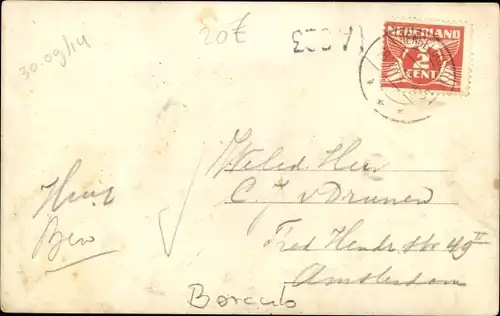 30.09/14
20€
NEDERLAND
2
CENT
Weled. Heer
C. J. v Drunen
Fred Hendr str 49 II
Amsterdam
Borculo